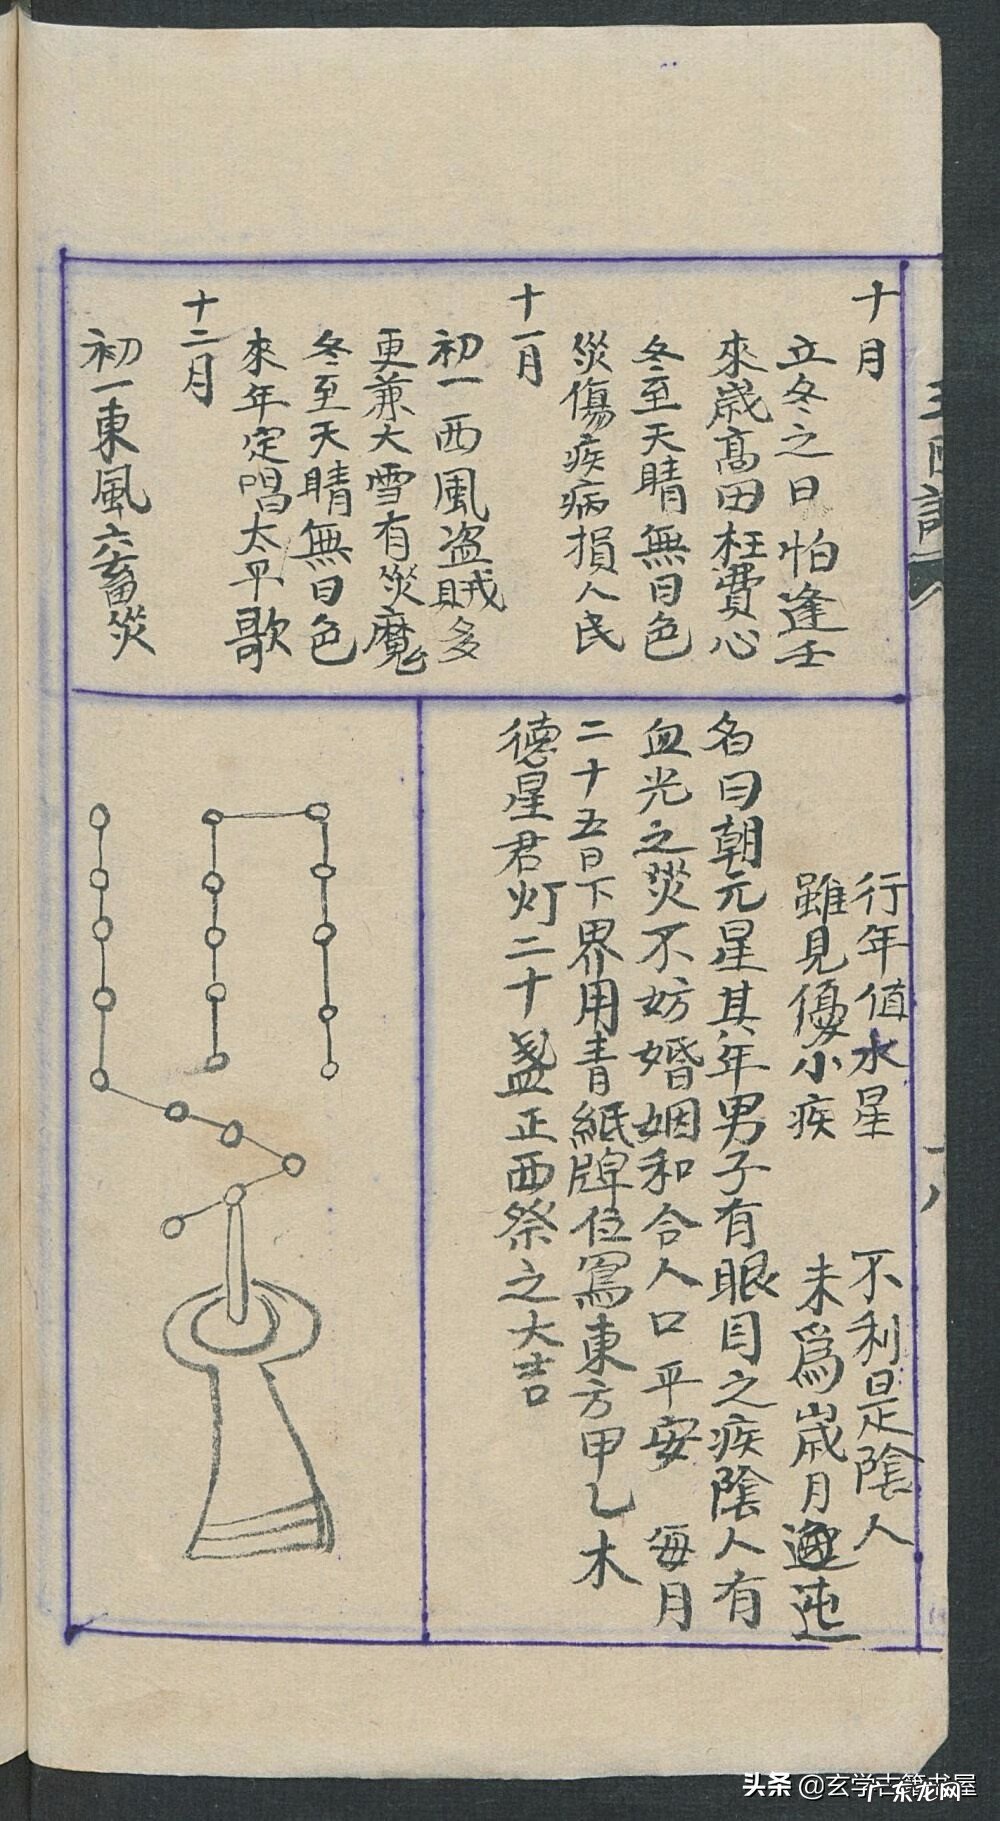 十月
立冬之日怕逢壬
來歲高田枉費心
冬至天晴無日色
災傷疾病損人民
十一月
初一西風盗賊多
更兼大雪有災魔
冬至天晴無日色
來年定唱太平歌
十二月
初一東風六畜災
行年值水星　不利是陰人
雖見優小疾　未爲歲月邅迍
名曰朝元星其年男子有眼目之疾陰人有
血光之災不妨婚姻和合人口平安　每月
二十五日下界用青紙牌位寫東方甲乙木
德星君灯二十盞正西祭之大吉
十八
头条 @玄学古籍书屋
广东龙网